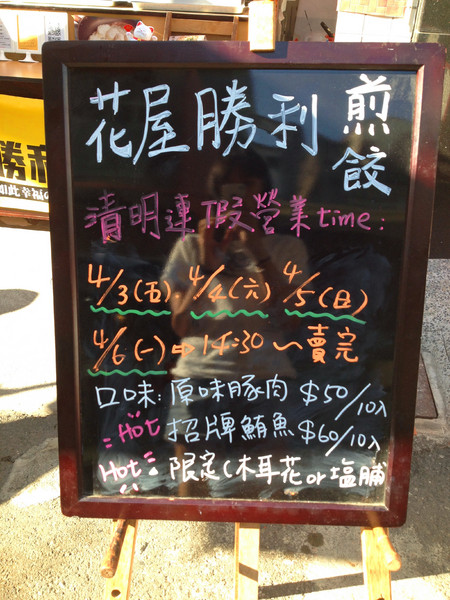 花屋勝利 煎餃
清明連假營業time:
4/3(五). 4/4(六) 4/5(日)
4/6(一)⇨14:30~賣完
口味:原味豚肉 $50/10入
Hot 招牌鮪魚 $60/10入
Hot 限定(木耳花or塩脯
勝利
如此幸福の